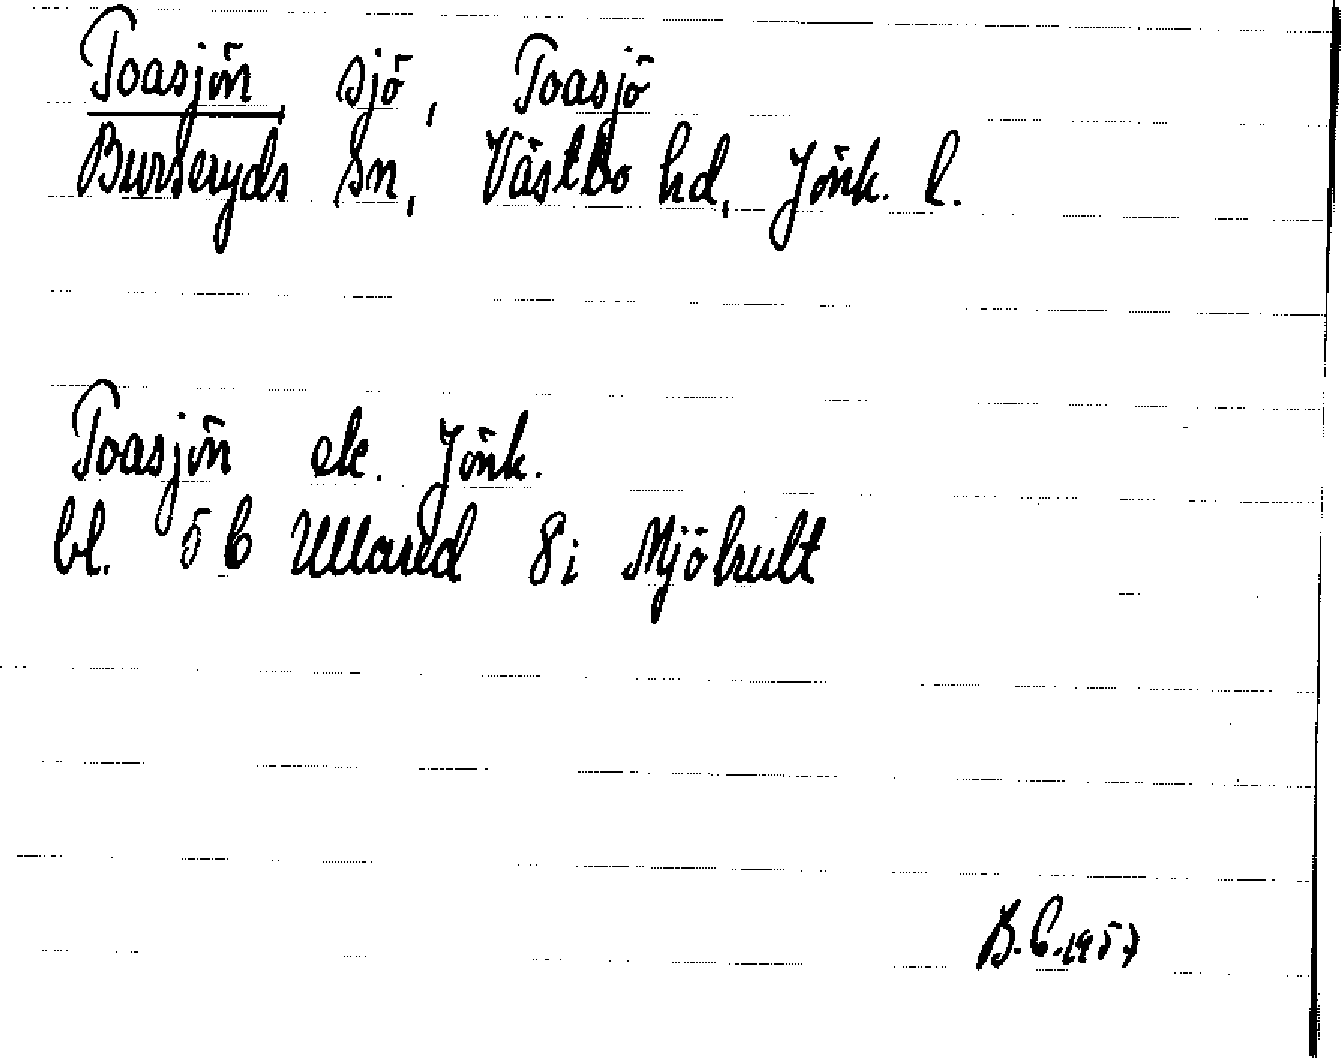 Toasjön sjö, Toasjö
Burseryds sn, Västbo hd, Jönk. l.
Toasjön ek. Jönk.
bl. 5 b Ullared 8 i Mjöhult
B. C. 1957